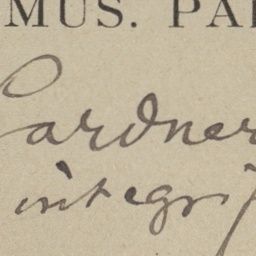 MUS. PAI
Gardner
integri